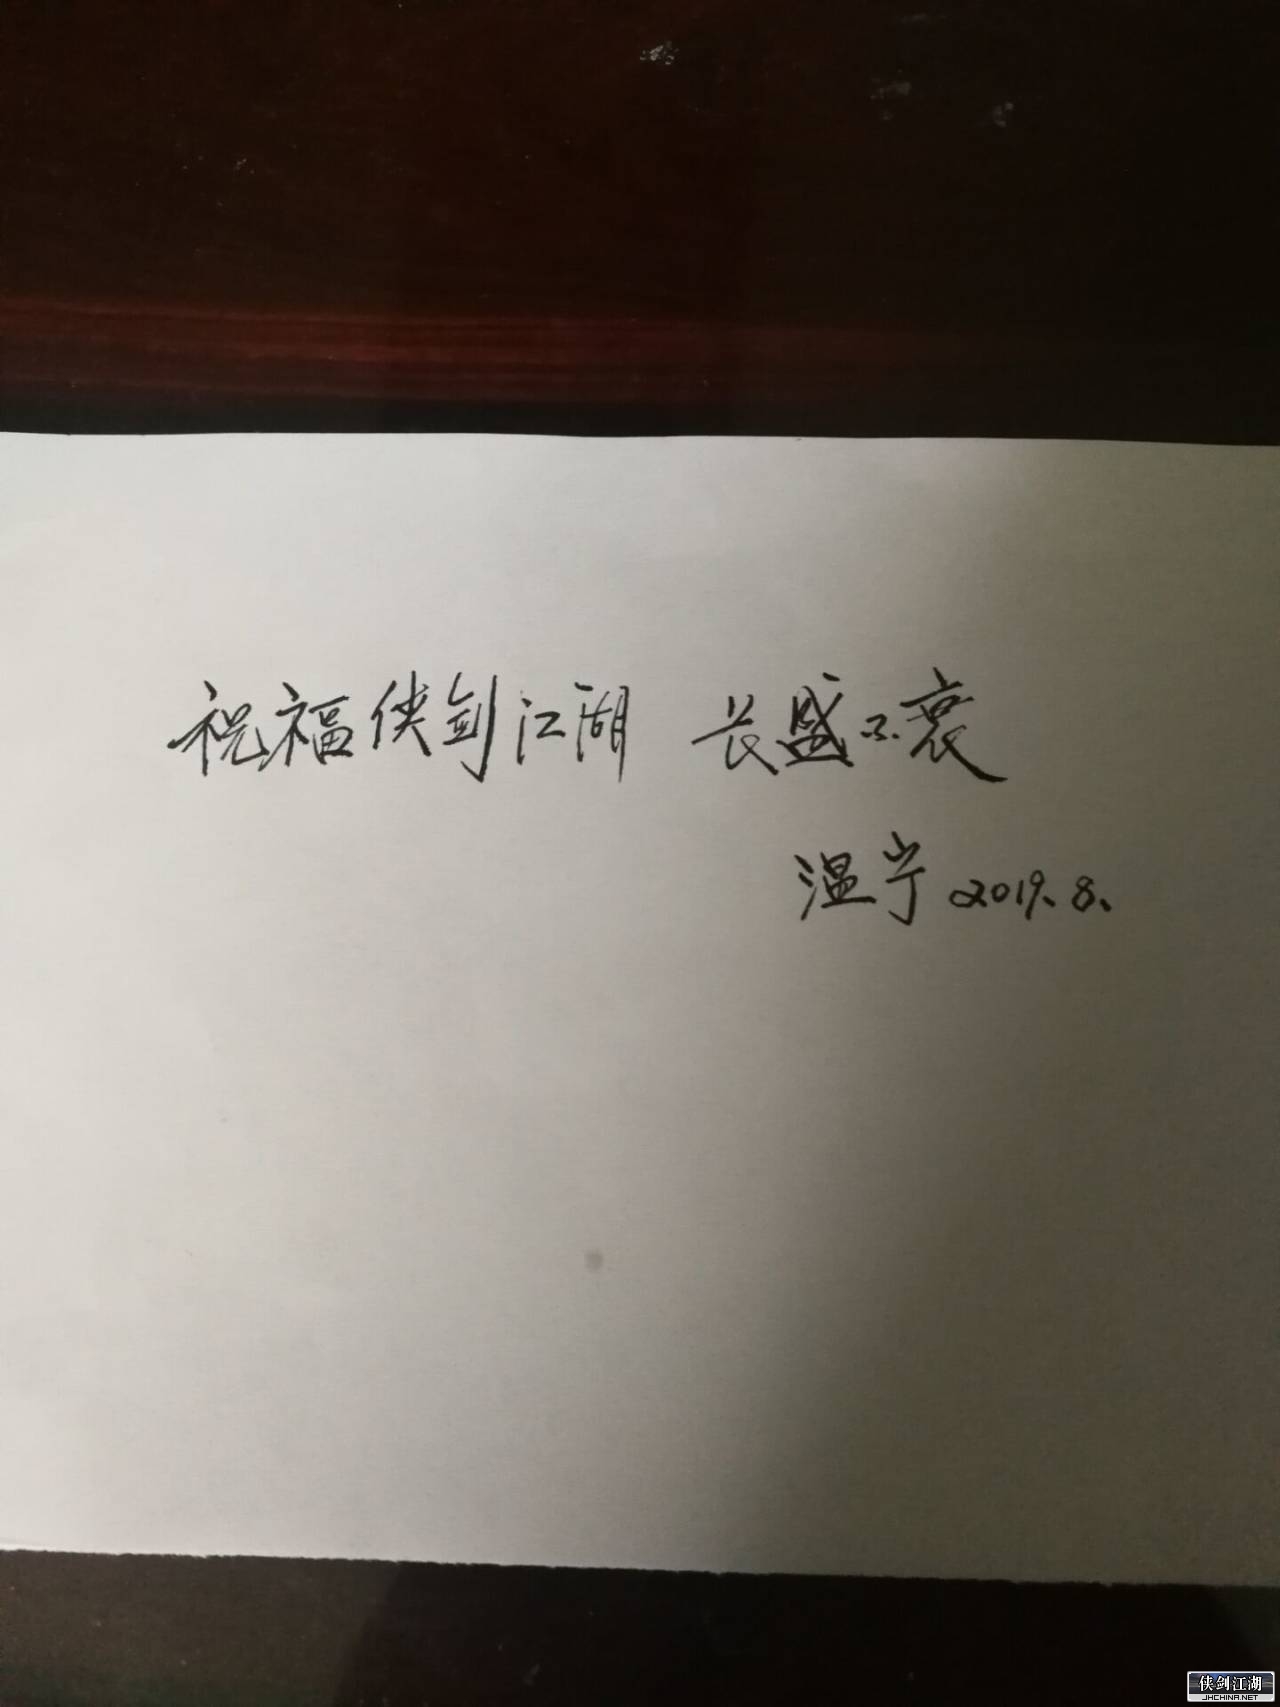 祝福侠剑江湖 长盛不衰
温宁 2019.8.
侠剑江湖
JHCHINA.NET